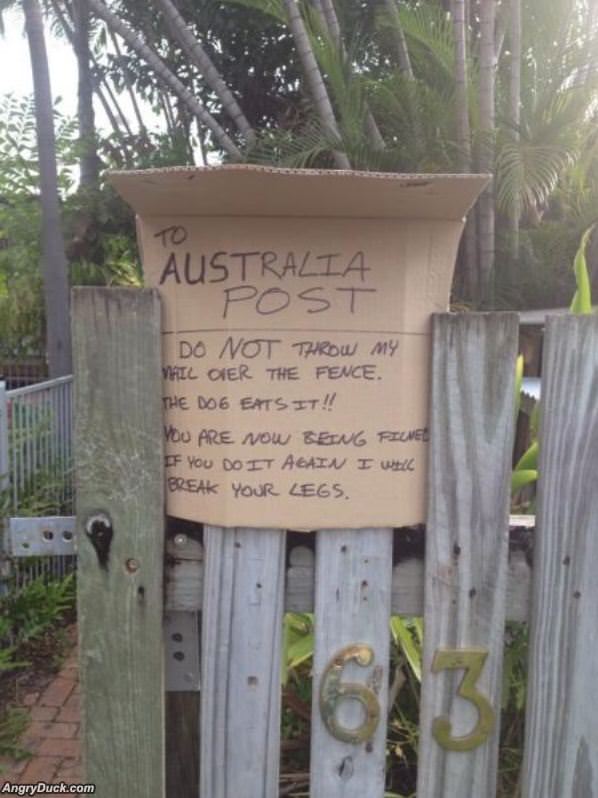 TO
AUSTRALIA
POST
DO NOT THROW MY
MAIL OVER THE FENCE.
THE DOG EATS IT!!
YOU ARE NOW BEING FILMED
IF YOU DO IT AGAIN I WILL
BREAK YOUR LEGS.
63
AngryDuck.com